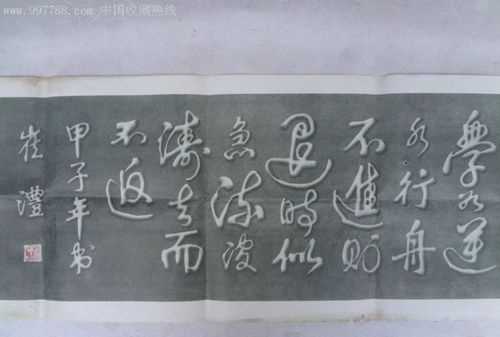 www.997788.com 中国收藏热线
學如逆
水行舟
不進則
退時似
急流波
濤去而
不返
甲子年书
崔澧